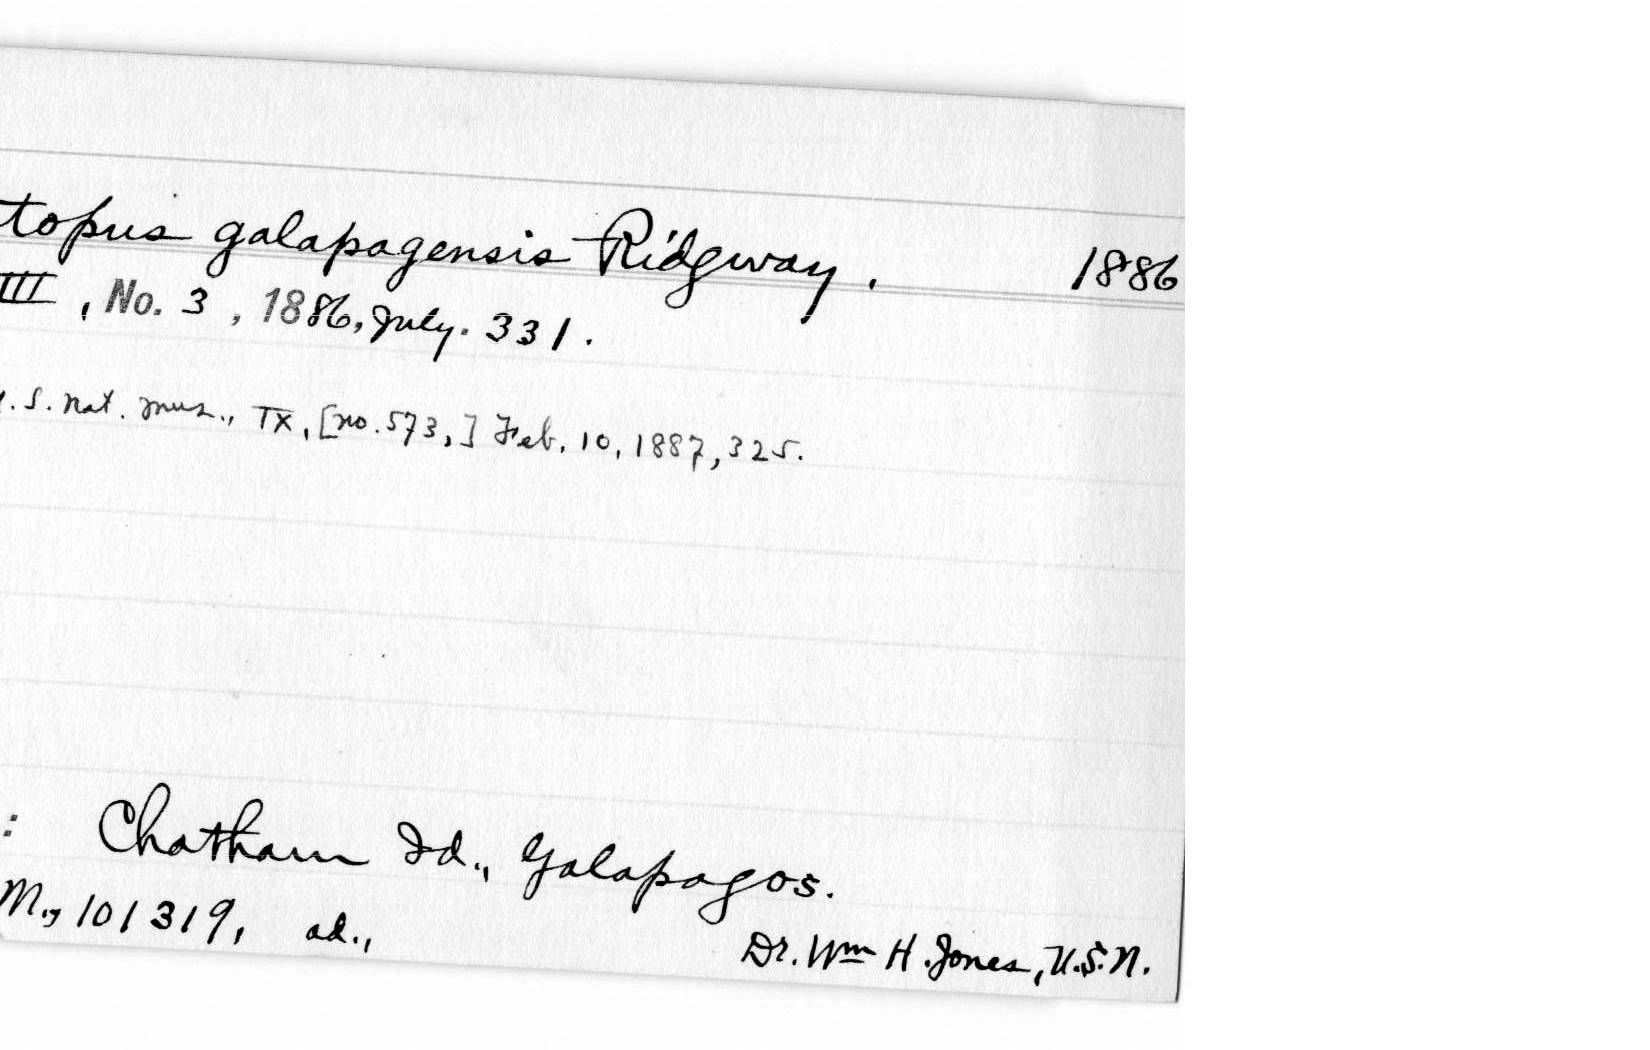 topus galapagensis Ridgway. 1886
III, No. 3, 1886, July. 331.
. S. Nat. Mus., IX, [no. 573,] Feb. 10, 1887, 325.
: Chatham Id., Galapagos.
M., 101319, ad.,
Dr. Wm H. Jones, U.S.N.